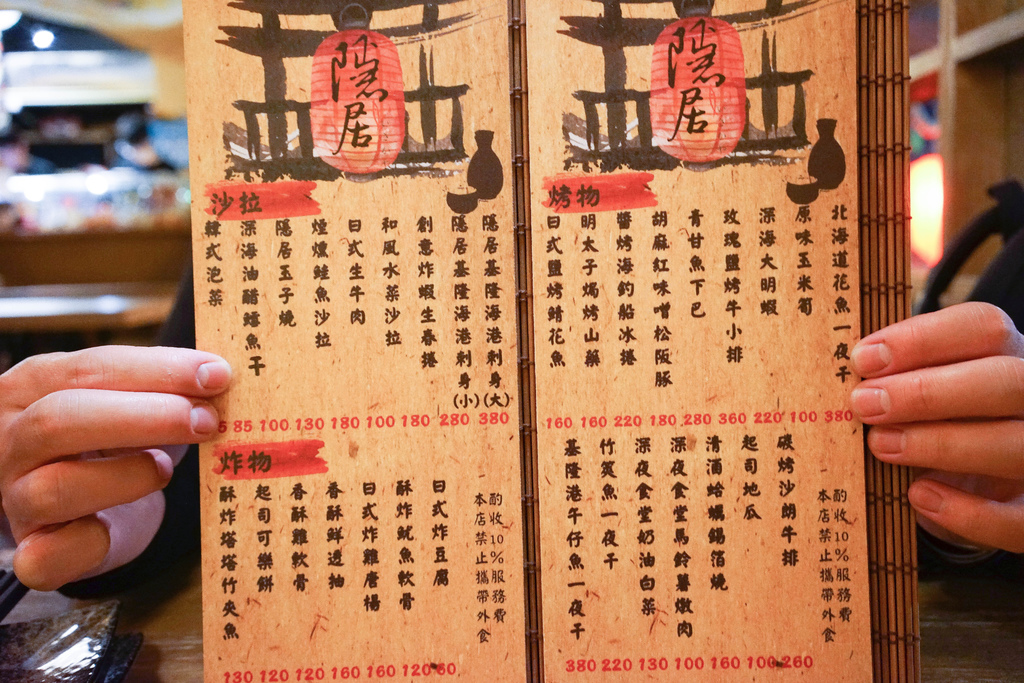 隱居
沙拉
隱居基隆海港刺身(大)
隱居基隆海港刺身(小)
創意炸蝦生春捲
和風水菜沙拉
日式生牛肉
煙燻鮭魚沙拉
隱居玉子燒
深海油醋鱈魚干
韓式泡菜
5 85 100 130 180 100 180 280 380
炸物
日式炸豆腐
酥炸魷魚軟骨
日式炸雞唐楊
香酥鮮边抽
香酥雞軟骨
起司可樂餅
酥炸塔塔竹夾魚
酌收10%服務費
本店禁止攜帶外食
130 120 120 160 160 120 60
隱居
烤物
北海道花魚一夜干
原味玉米筍
深海大明蝦
玫瑰鹽烤牛小排
青甘魚下巴
胡麻紅味噌松阪豚
醬烤海釣船冰捲
明太子焗烤山藥
日式鹽烤鯖花魚
160 160 220 180 280 360 220 100 380
碳烤沙朗牛排
起司地瓜
清酒蛤蠣錫箔燒
深夜食堂馬鈴薯燉肉
深夜食堂奶油白菜
竹筴魚一夜干
基隆港午仔魚一夜干
酌收10%服務費
本店禁止攜帶外食
380 220 130 100 160 100 260